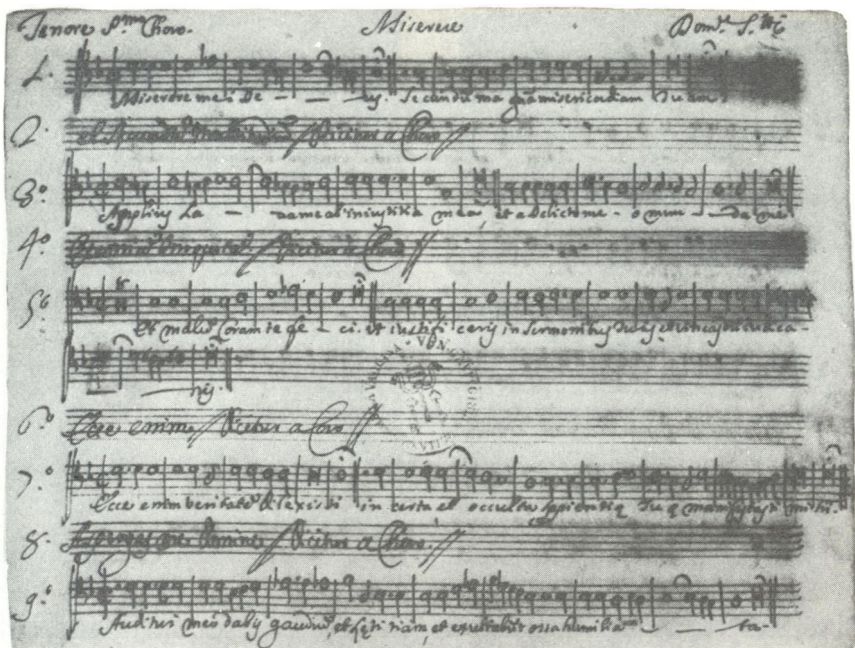 Tenore P.mo Choro. Miserere Dom.co S.tti
1.
Miserere mei De - - - us. Secundum magnam misericordiam tuam
2. et Secundum Dicitur a Choro
3.º
Amplius La - vame ab iniustitia mea, et a Delicto me - o mun - da me
4.º Dicitur a Choro
5.º
Et malum Coram te fe - ci. et iustifi ceris in Sermonibus tuis, et vincas cum iudica -
ris.
6.º Ecce enim Dicitur a Coro
7.º
Ecce enim veritatem dilexisti in certa et occulta sapientiæ tuæ manifestasti mihi.
8. Asperges me Domine Dicitur a Choro.
9.º
Auditui meo dabis gaudium, et lætitiam, et exultabunt ossa humilia - - ta.